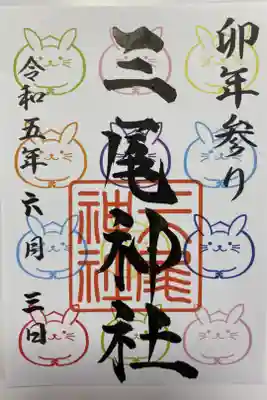 卯年参り
三尾神社
三尾神社
令和五年六月三日